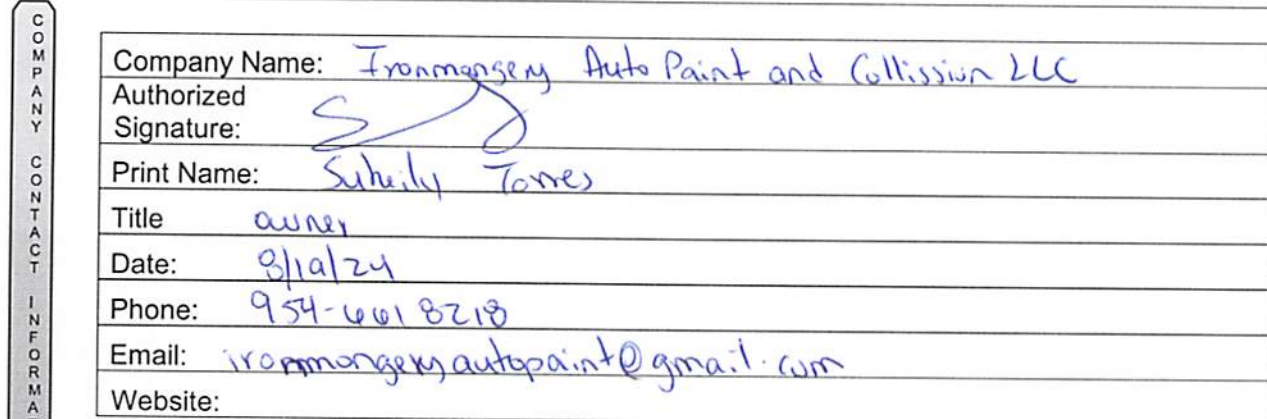 COMPANY CONTACT INFORMA
Company Name: Ironmongery Auto Paint and Collission LLC
Authorized
Signature:
Print Name: Suheily Torres
Title owner
Date: 8/19/24
Phone: 954-661 8218
Email: ironmongeryautopaint@gmail.com
Website: